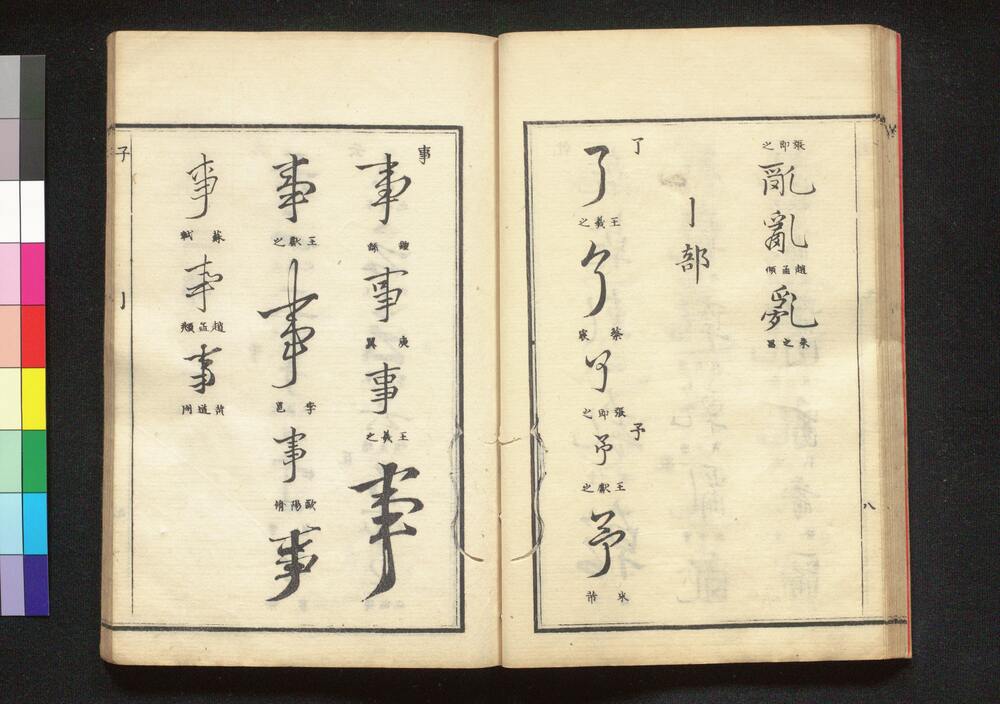 八
張即之
亂
亂
趙孟頫
亂
亅部
了
了
王羲之
了
蔡襄
了
張即之
予
予
王獻之
予
米芾
事
事
鍾繇
事
庾翼
事
王羲之
事
事
王獻之
事
李邕
事
歐陽脩
事
事
蘇軾
事
趙孟頫
事
黃道周
子
亅